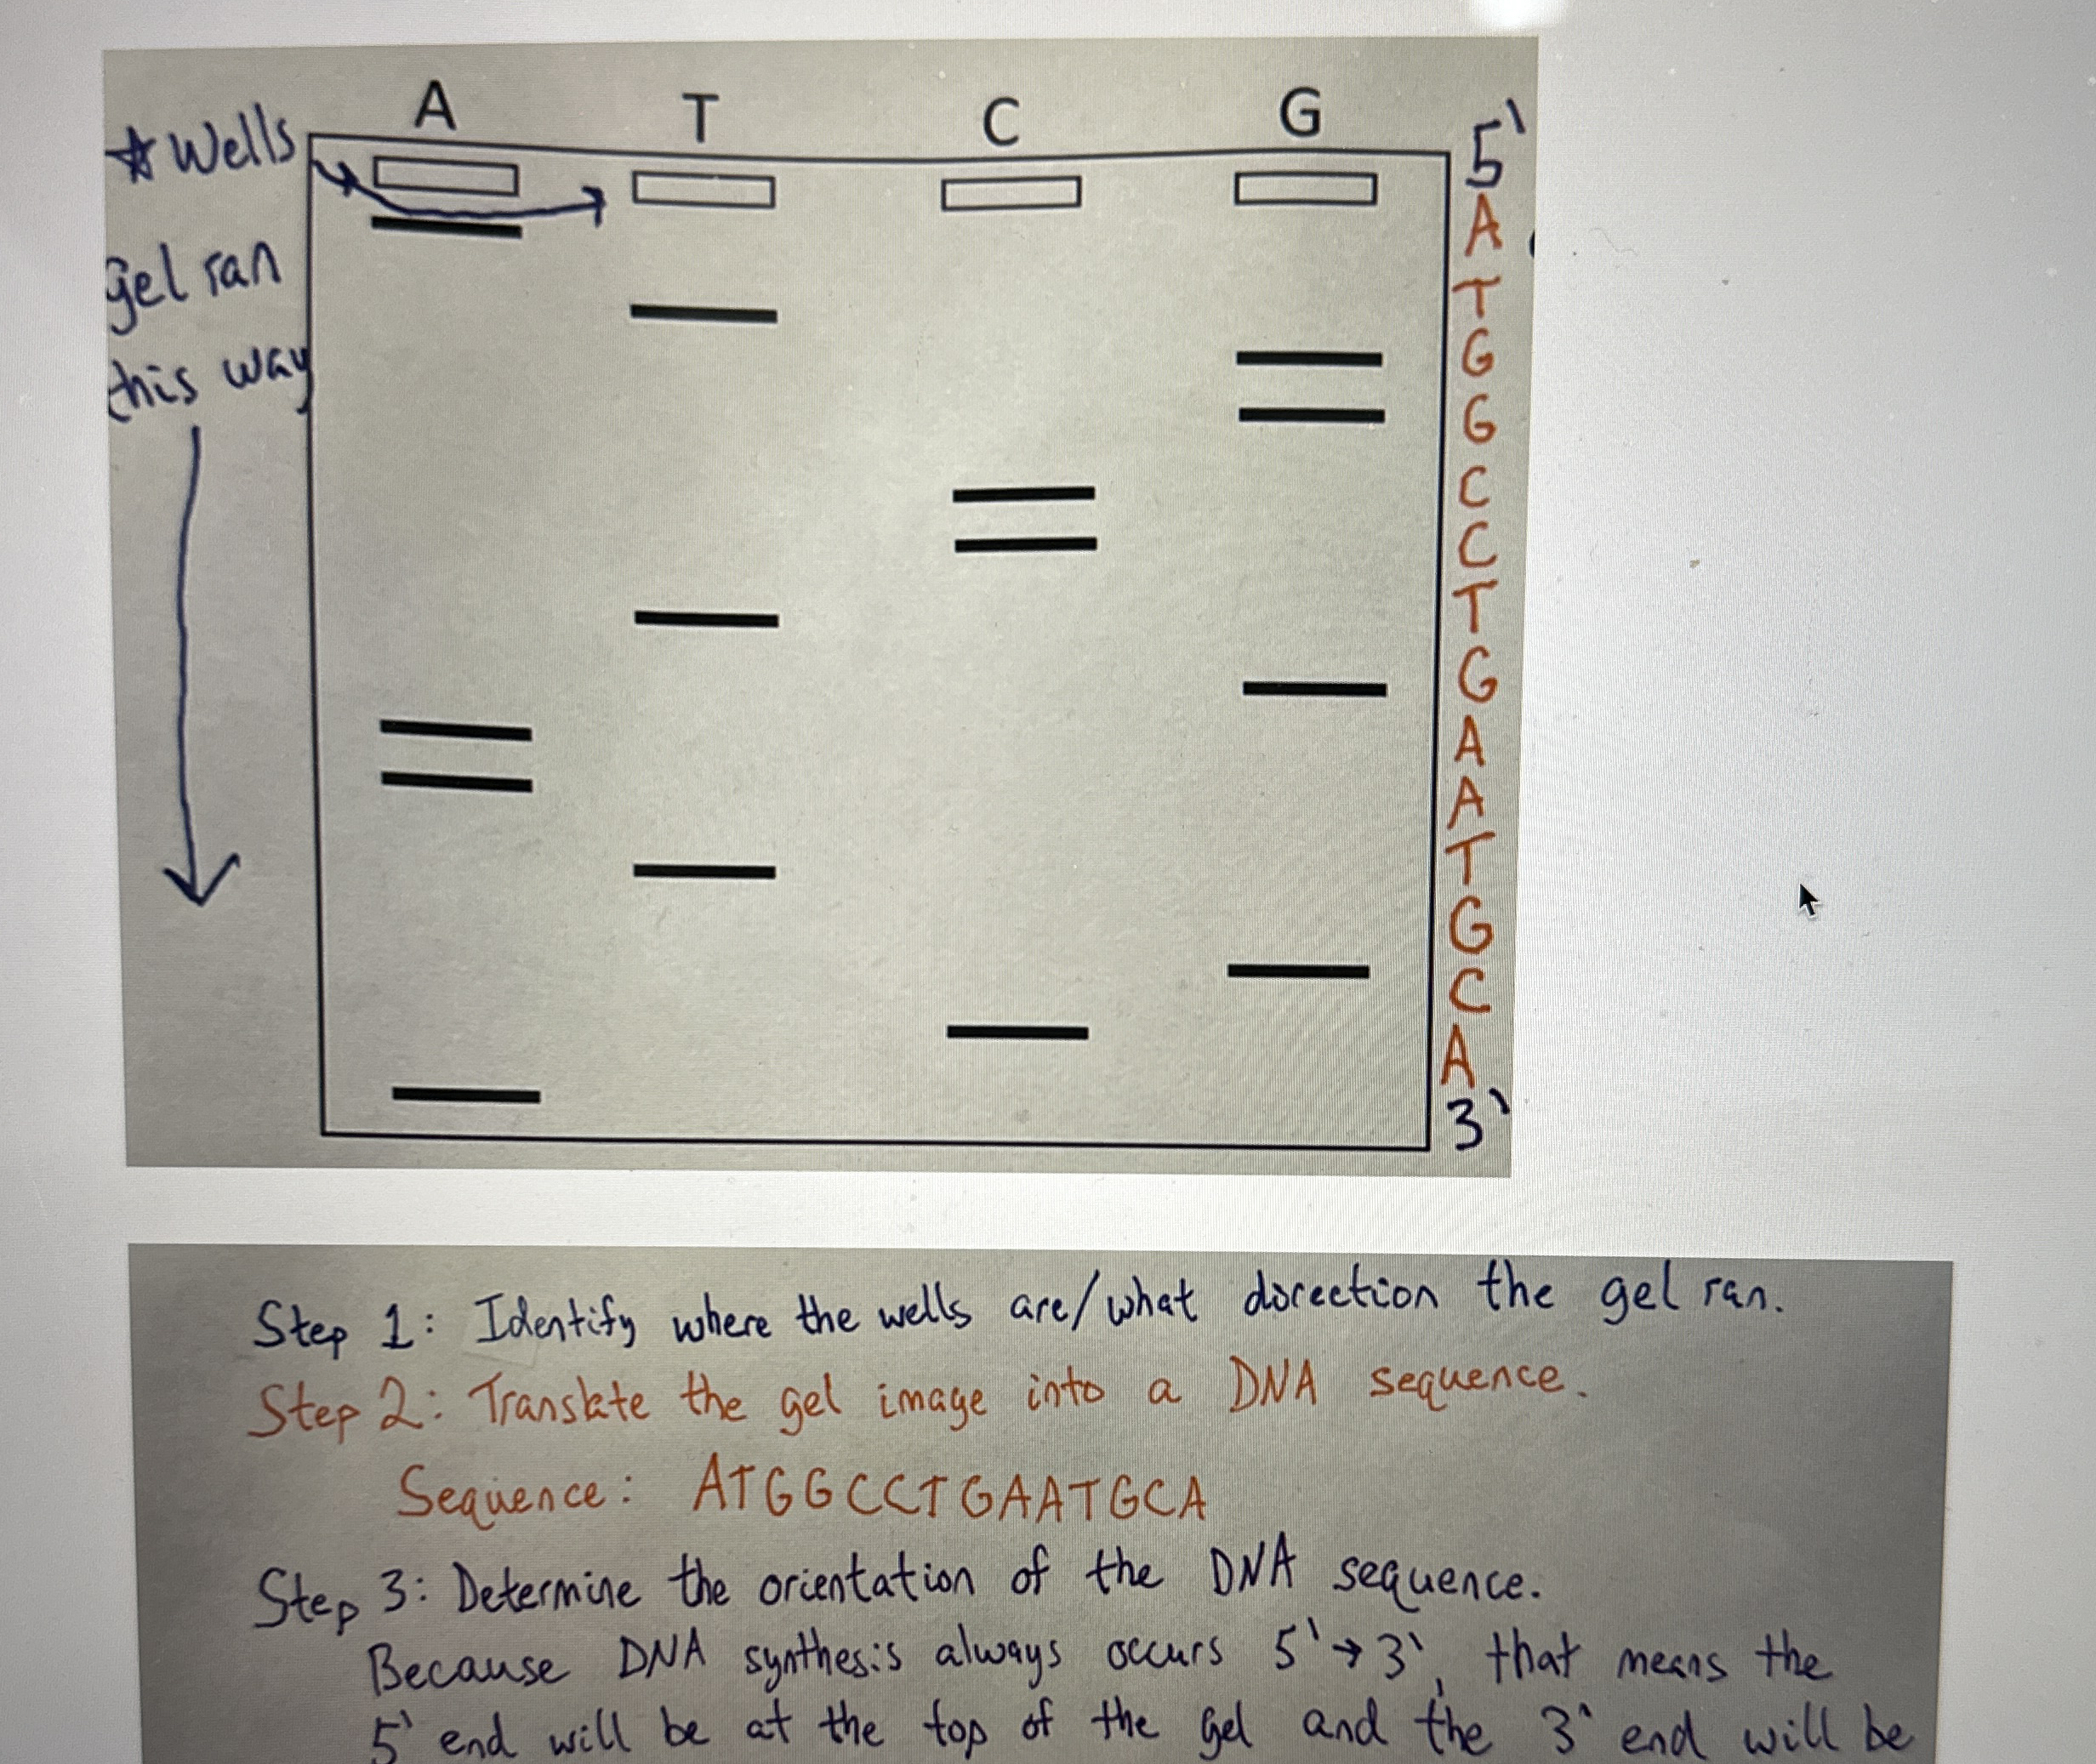 A T C G
☆ Wells
gel ran
this way
5'
A
T
G
G
C
C
T
G
A
A
T
G
C
A
3'
Step 1: Identify where the wells are/what direction the gel ran.
Step 2: Translate the gel image into a DNA sequence.
Sequence: ATGGCCTGAATGCA
Step 3: Determine the orientation of the DNA sequence.
Because DNA synthesis always occurs 5'→3', that means the
5' end will be at the top of the gel and the 3' end will be